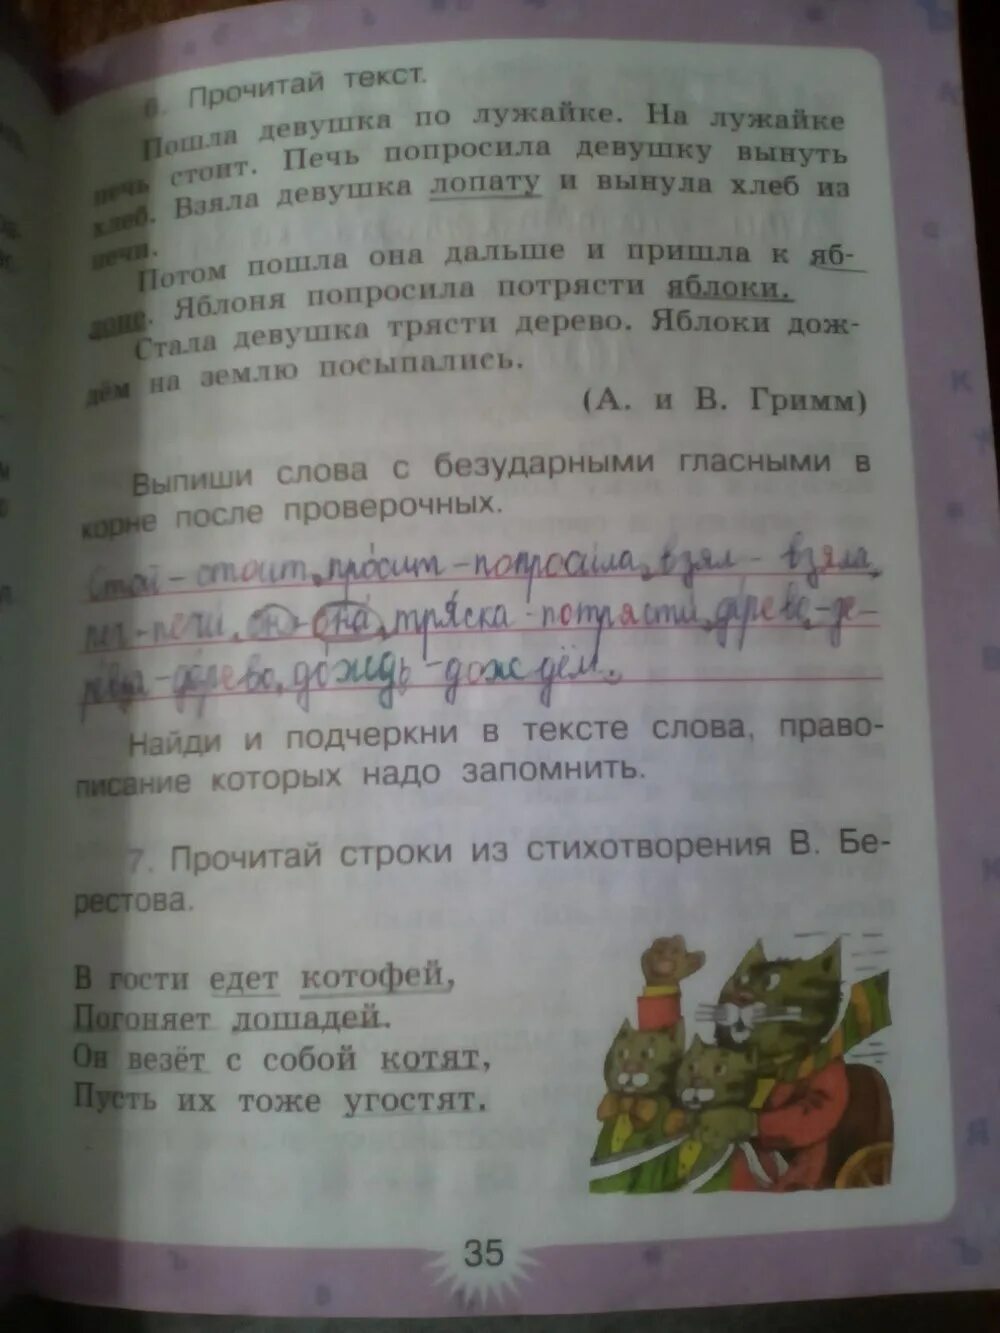 6. Прочитай текст.
Пошла девушка по лужайке. На лужайке
печь стоит. Печь попросила девушку вынуть
хлеб. Взяла девушка лопату и вынула хлеб из
печи.
Потом пошла она дальше и пришла к яб-
лоне. Яблоня попросила потрясти яблоки.
Стала девушка трясти дерево. Яблоки дож-
дём на землю посыпались.
(А. и В. Гримм)
Выпиши слова с безударными гласными в
корне после проверочных.
Стой - стоит, просит - попросила, взял - взяла,
печ - печи, он - она, тряска - потрясти, дерево - де-
ревья - дерево, дождь - дождём.
Найди и подчеркни в тексте слова, право-
писание которых надо запомнить.
7. Прочитай строки из стихотворения В. Бе-
рестова.
В гости едет котофей,
Погоняет лошадей.
Он везёт с собой котят,
Пусть их тоже угостят.
35